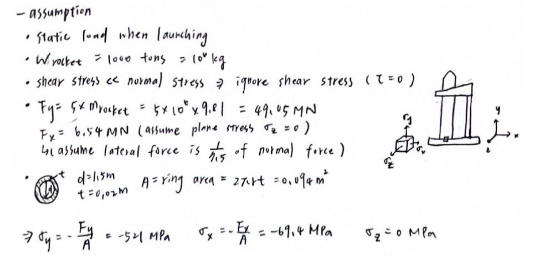 - assumption
• static load when launching
• Wrocket = 1000 tons = 10⁶ kg
• shear stress << normal stress ⇒ ignore shear stress (τ=0)
• Fy = 5×mrocket = 5×10⁶×9.81 = 49.05 MN
Fx = 6.54 MN (assume plane stress σz = 0)
↳(assume lateral force is 1/7.5 of normal force)
• t d=1.5m A = ring area = 2πrt = 0.094 m²
t=0.02m
⇒ σy = - Fy/A = -521 MPa σx = - Fx/A = -69.4 MPa σz = 0 MPa
σy
σx
σz
y
x
z